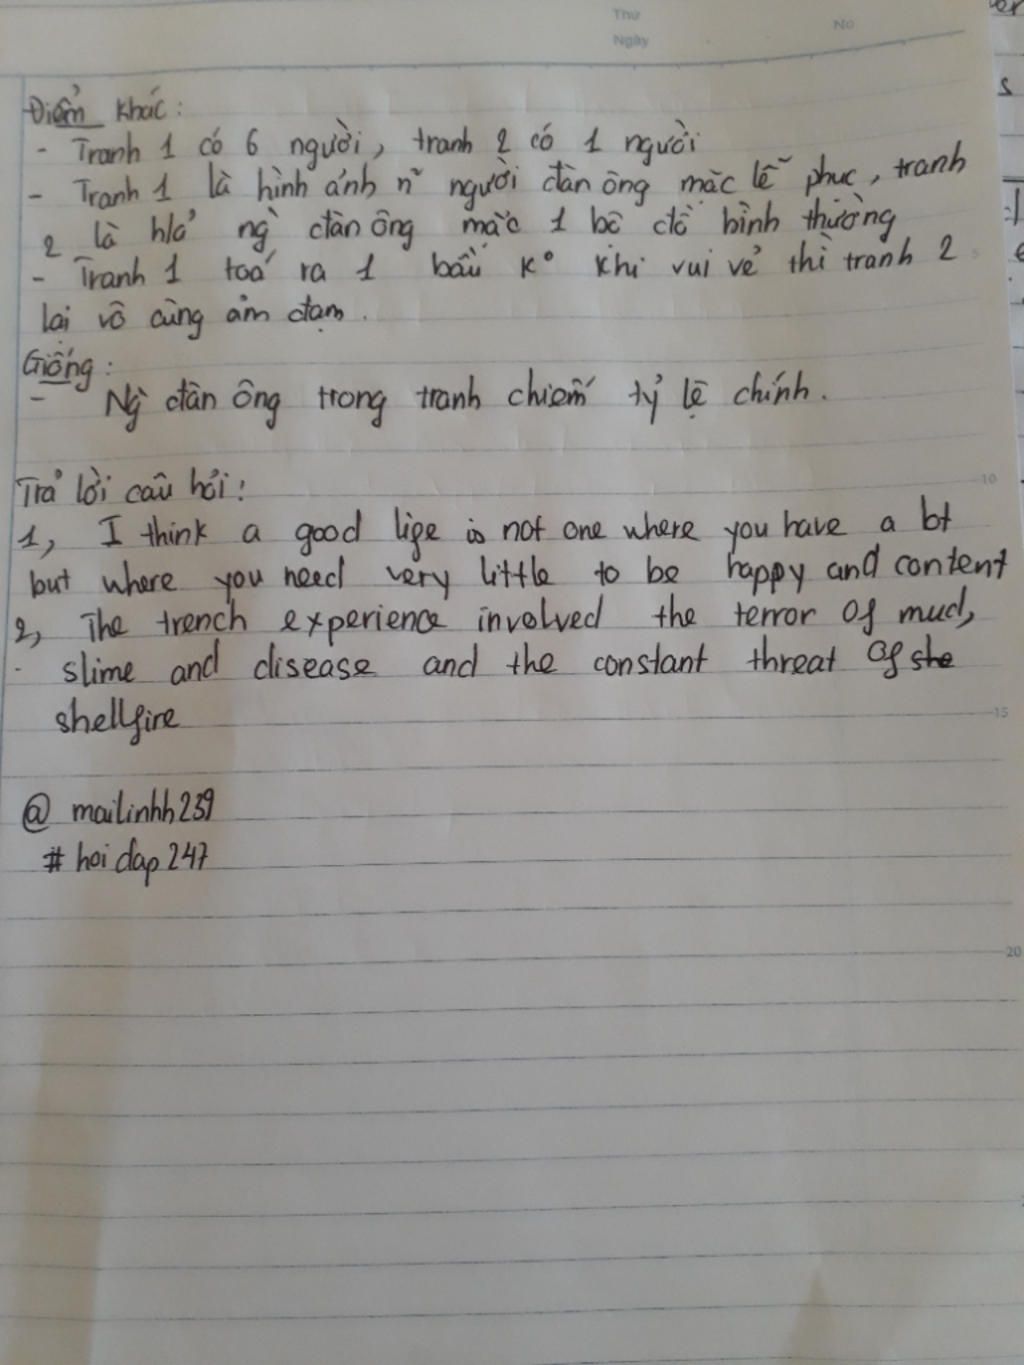 Thứ
No
Ngày
Điểm khác:
- Tranh 1 có 6 người, tranh 2 có 1 người
- Tranh 1 là hình ảnh n~ người đàn ông mặc lễ phục, tranh
2 là h/ả ng` đàn ông mặc 1 bộ đồ bình thường
- Tranh 1 toả ra 1 bầu k° khí vui vẻ thì tranh 2
lại vô cùng ảm đạm.
Giống:
- Ng` đàn ông trong tranh chiếm tỷ lệ chính.
Trả lời câu hỏi:
10
1, I think a good life is not one where you have a lot
but where you need very little to be happy and content
2, The trench experience involved the terror of mud,
slime and disease and the constant threat of she
shellfire
15
@ mailinhh239
# hoidap247
20